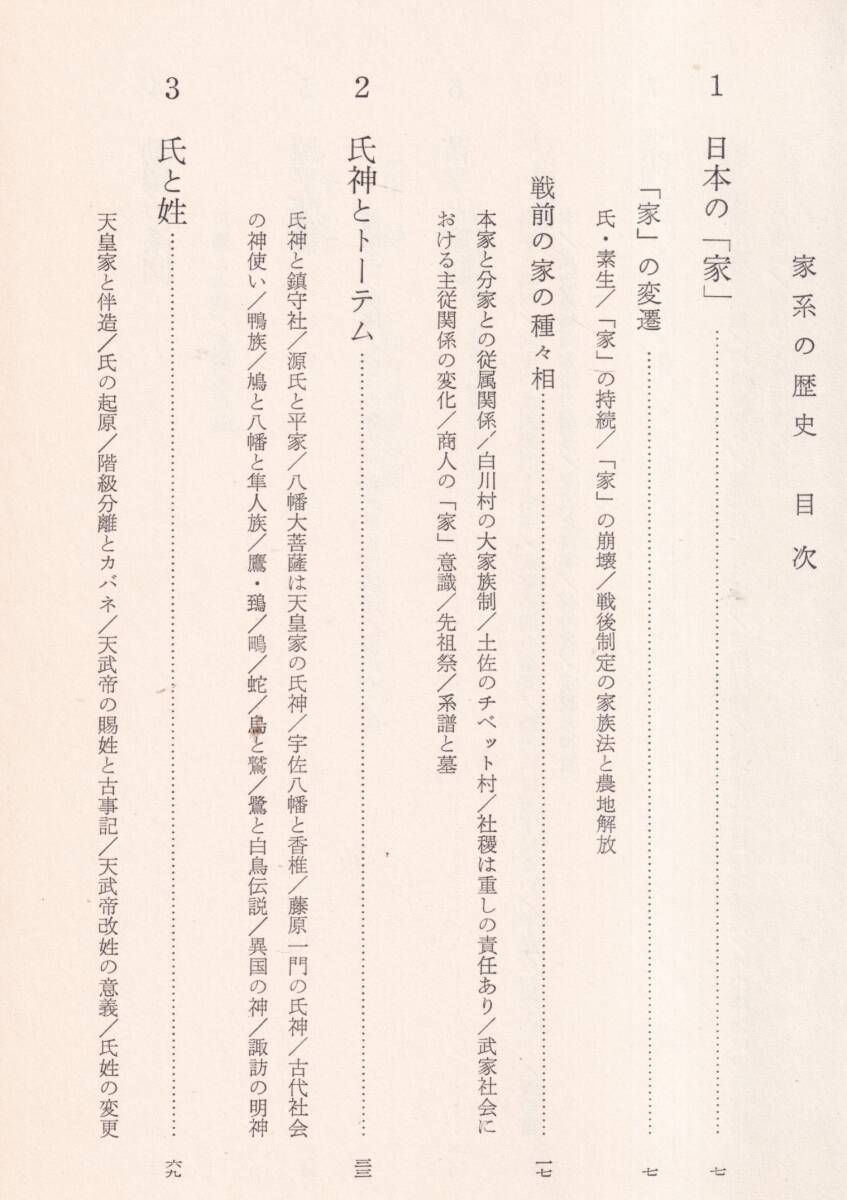 家系の歴史 目次
1 日本の「家」……七
「家」の変遷……七
氏・素生/「家」の持続/「家」の崩壊/戦後制定の家族法と農地解放
戦前の家の種々相……一七
本家と分家との従属関係/白川村の大家族制/土佐のチベット村/社稷は重しの責任あり/武家社会に
おける主従関係の変化/商人の「家」意識/先祖祭/系譜と墓
2 氏神とトーテム……三三
氏神と鎮守社/源氏と平家/八幡大菩薩は天皇家の氏神/宇佐八幡と香椎/藤原一門の氏神/古代社会
の神使い/鴨族/鳩と八幡と隼人族/鷹・鵄/鴫/蛇/烏と鷲/鷺と白鳥伝説/異国の神/諏訪の明神
3 氏と姓……六九
天皇家と伴造/氏の起原/階級分離とカバネ/天武帝の賜姓と古事記/天武帝改姓の意義/氏姓の変更